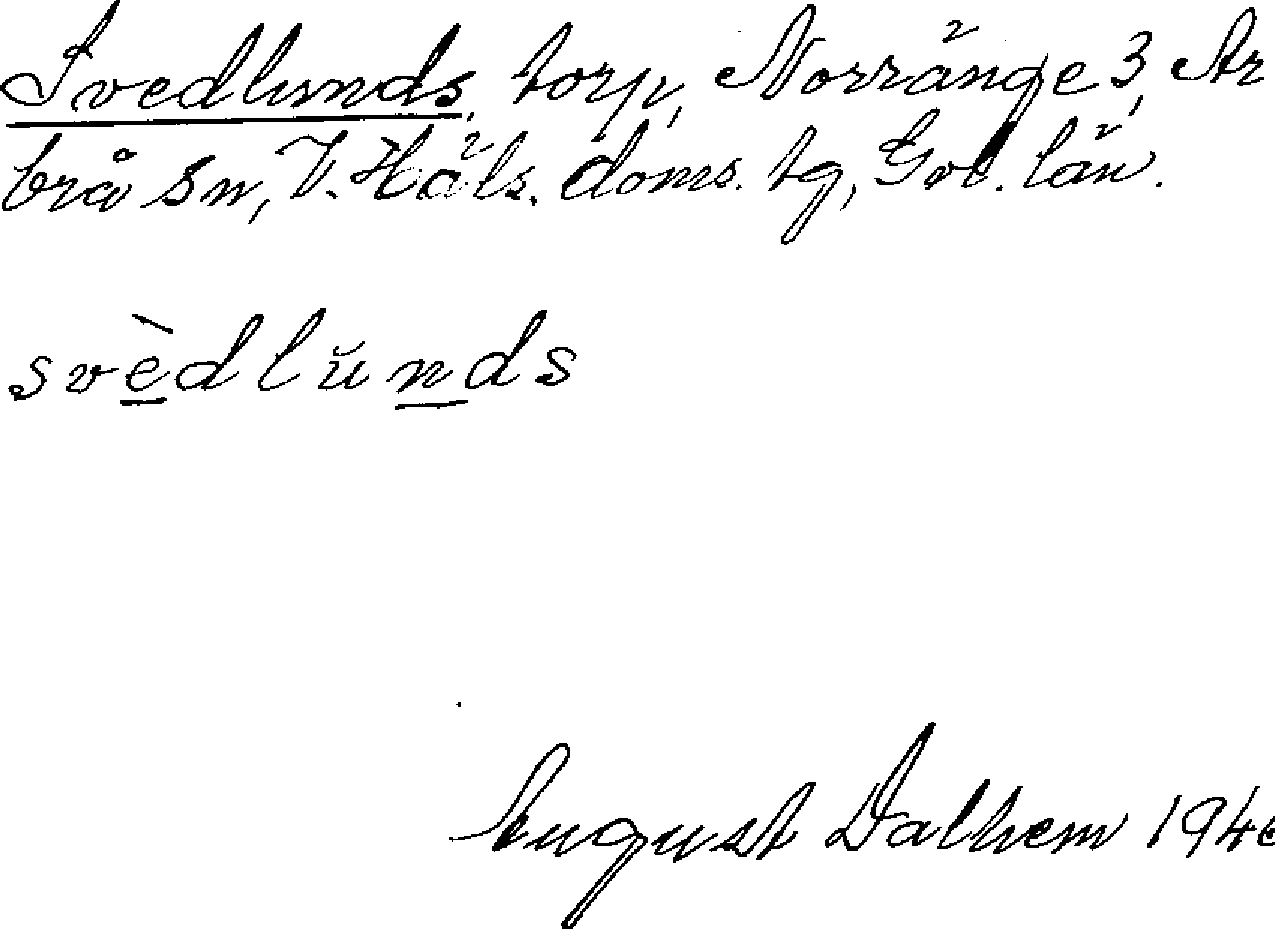 Svedlunds, torp, Norränge 3, Ar
brå sn, V. Häls. doms. tg, Gvl. län.
svèdlŭnds
August Dalhem 194